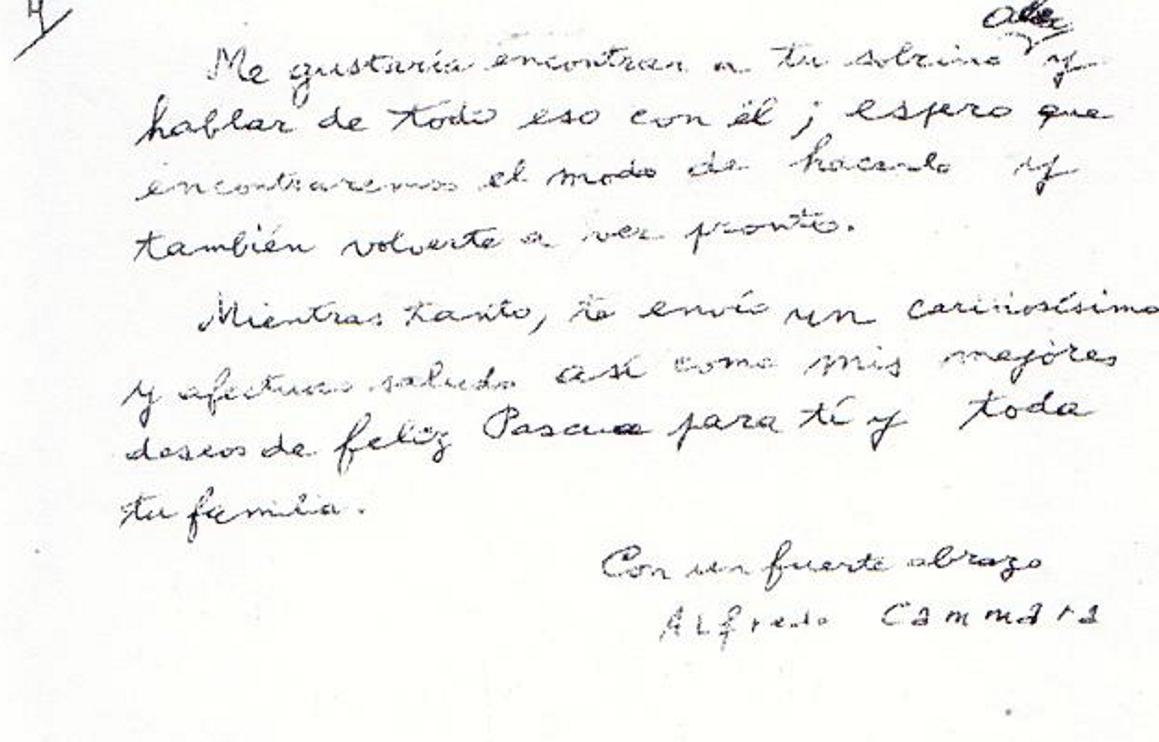 4/
Alex
Me gustaría encontrar a tu sobrino y
hablar de todo eso con él; espero que
encontraremos el modo de hacerlo y
también volverte a ver pronto.
Mientras tanto, te envío un cariñosísimo
y afectuoso saludo así como mis mejores
deseos de feliz Pascua para tí y toda
tu familia.
Con un fuerte abrazo
Alfredo Cammara